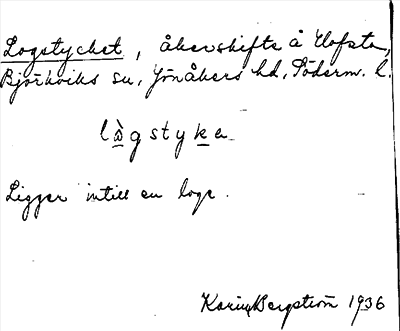 Logstycket, åkerskifte å Hofsta,
Björkviks sn, Jönåkers hd, Söderm. l.
lògstyke
Ligger intill en loge.
Karin Bergström 1936